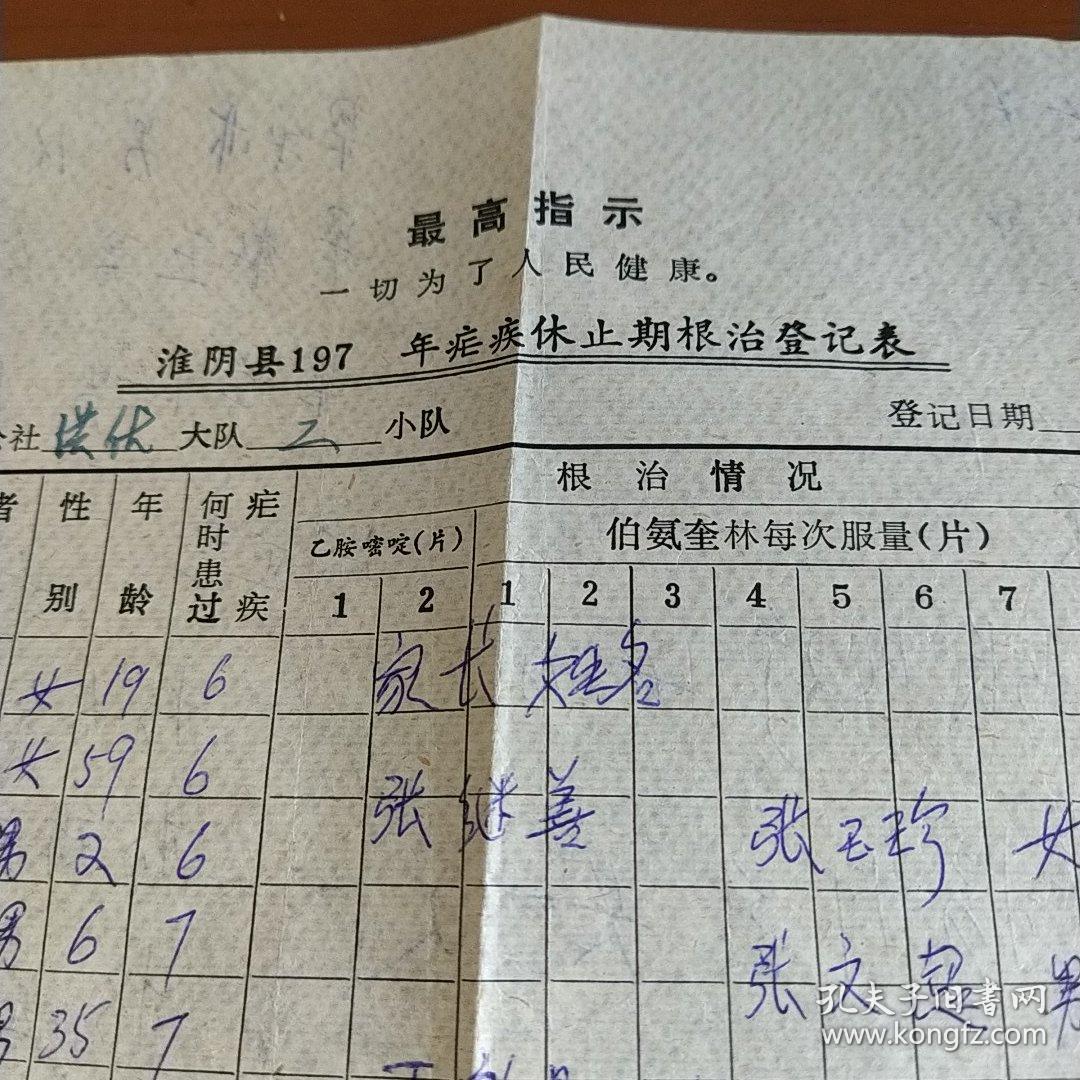 最高指示
一切为了人民健康。
淮阴县197 年疟疾休止期根治登记表
公社 洪伏 大队 二 小队 登记日期
者 性别 年龄 何时患过疟疾 根治情况
乙胺嘧啶(片) 伯氨奎林每次服量(片)
1 2 1 2 3 4 5 6 7
女 19 6 家长 姓名
女 59 6
张继善
男 2 6 张玉珍 女
男 6 7
张文 男
男 35 7
孔夫子旧书网
www.kongfz.com